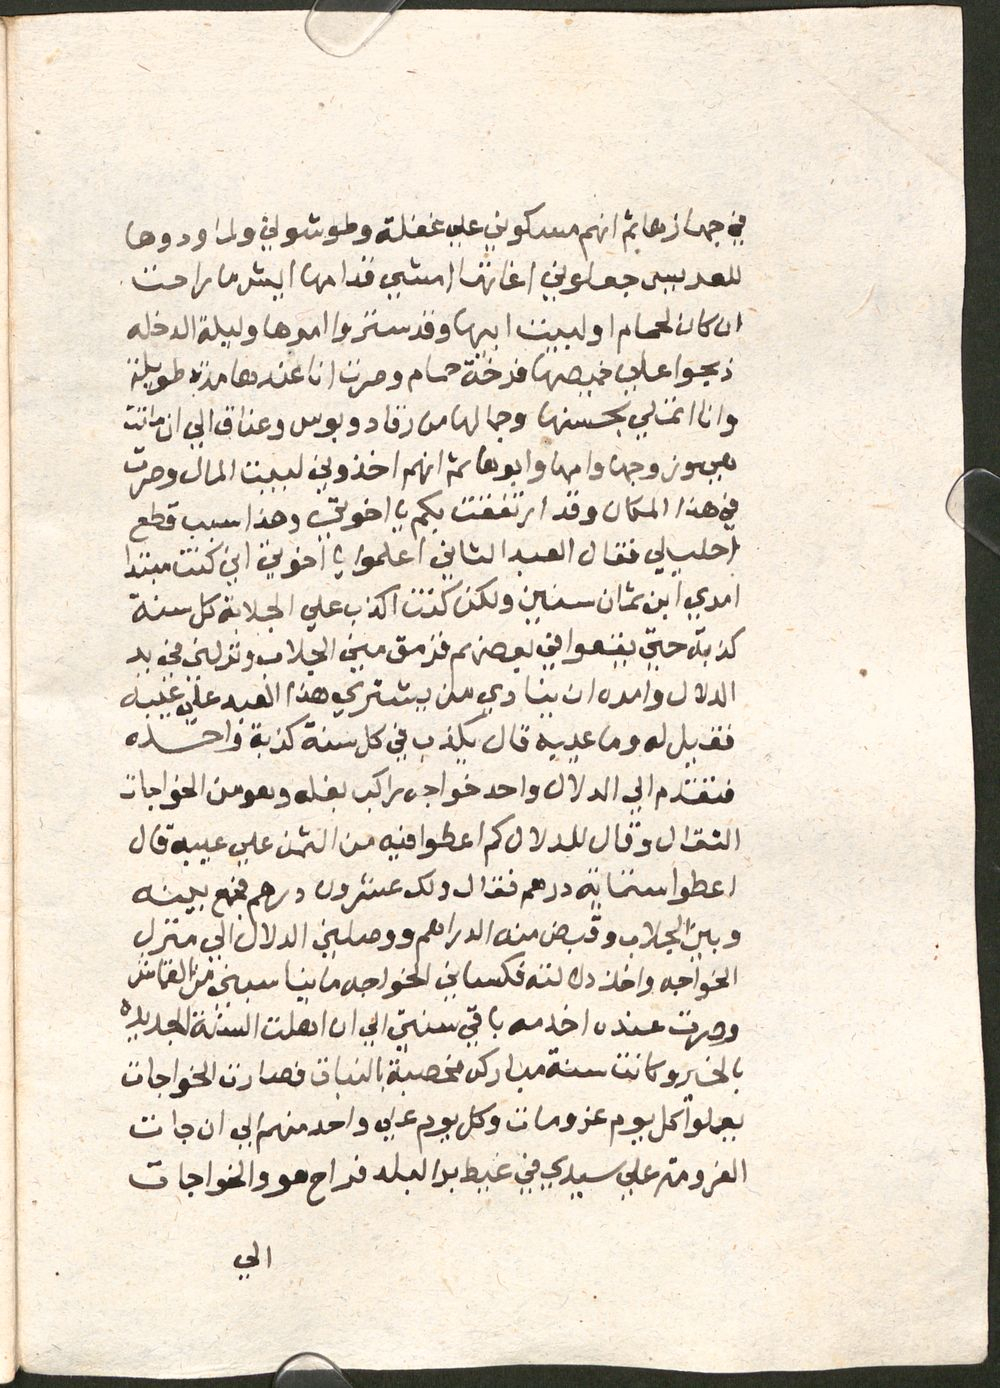 في جهازها ثم انهم مسكوني علي غفلة وطوشوني ولما ودوها
للعريس جعلوني اغاتها امشي قدامها ايش ما راحت
ان كان لحمام او لبيت ابيها وقد ستروا امرها وليلة الدخله
ذبحوا علي قميصها فرخة حمام وصرت انا عندها مدة طويلة
وانا اتملي بحسنها وجمالها من رقاد وبوس وعناق الي ان ماتت
هي وزوجها وامها وابوها ثم انهم اخذوني لبيت المال وصرت
في هذا المكان وقد ارتفقت بكم يا اخوتي وهذا سبب قطع
احليلي فقال العبد الثاني اعلموا يا اخوتي اني كنت مبتدا
امري ابن ثمان سنين ولكن كنت اكذب علي الجلابة كل سنة
كذبة حتي يقعوا في بعضهم فزهق مني الجلاب ونزلني في يد
الدلال وامره ان ينادي من يشتري هذا العبد علي عيبه
فقيل له وما عيبه قال يكذب في كل سنة كذبة واحده
فتقدم الي الدلال واحد خواجه راكب بغله وهو من الخواجات
الثقال وقال للدلال كم اعطوا فيه من الثمن علي عيبه قال
اعطوا ستماية درهم فقال ولك عشرون درهم فجمع بينه
وبين الجلاب وقبض منه الدراهم ووصلني الدلال الي منزل
الخواجه واخذ دلالته فكساني الخواجه ما يناسبني من القماش
وصرت عنده اخدمه باقي سنتي الي ان اهلت السنة الجديده
بالخير وكانت سنة مباركه مخصبة بالنبات فصارت الخواجات
يعملوا كل يوم عزومات وكل يوم علي واحد منهم الي ان جات
العزومة علي سيدي في غيط برا البلد فراح هو والخواجات
الي